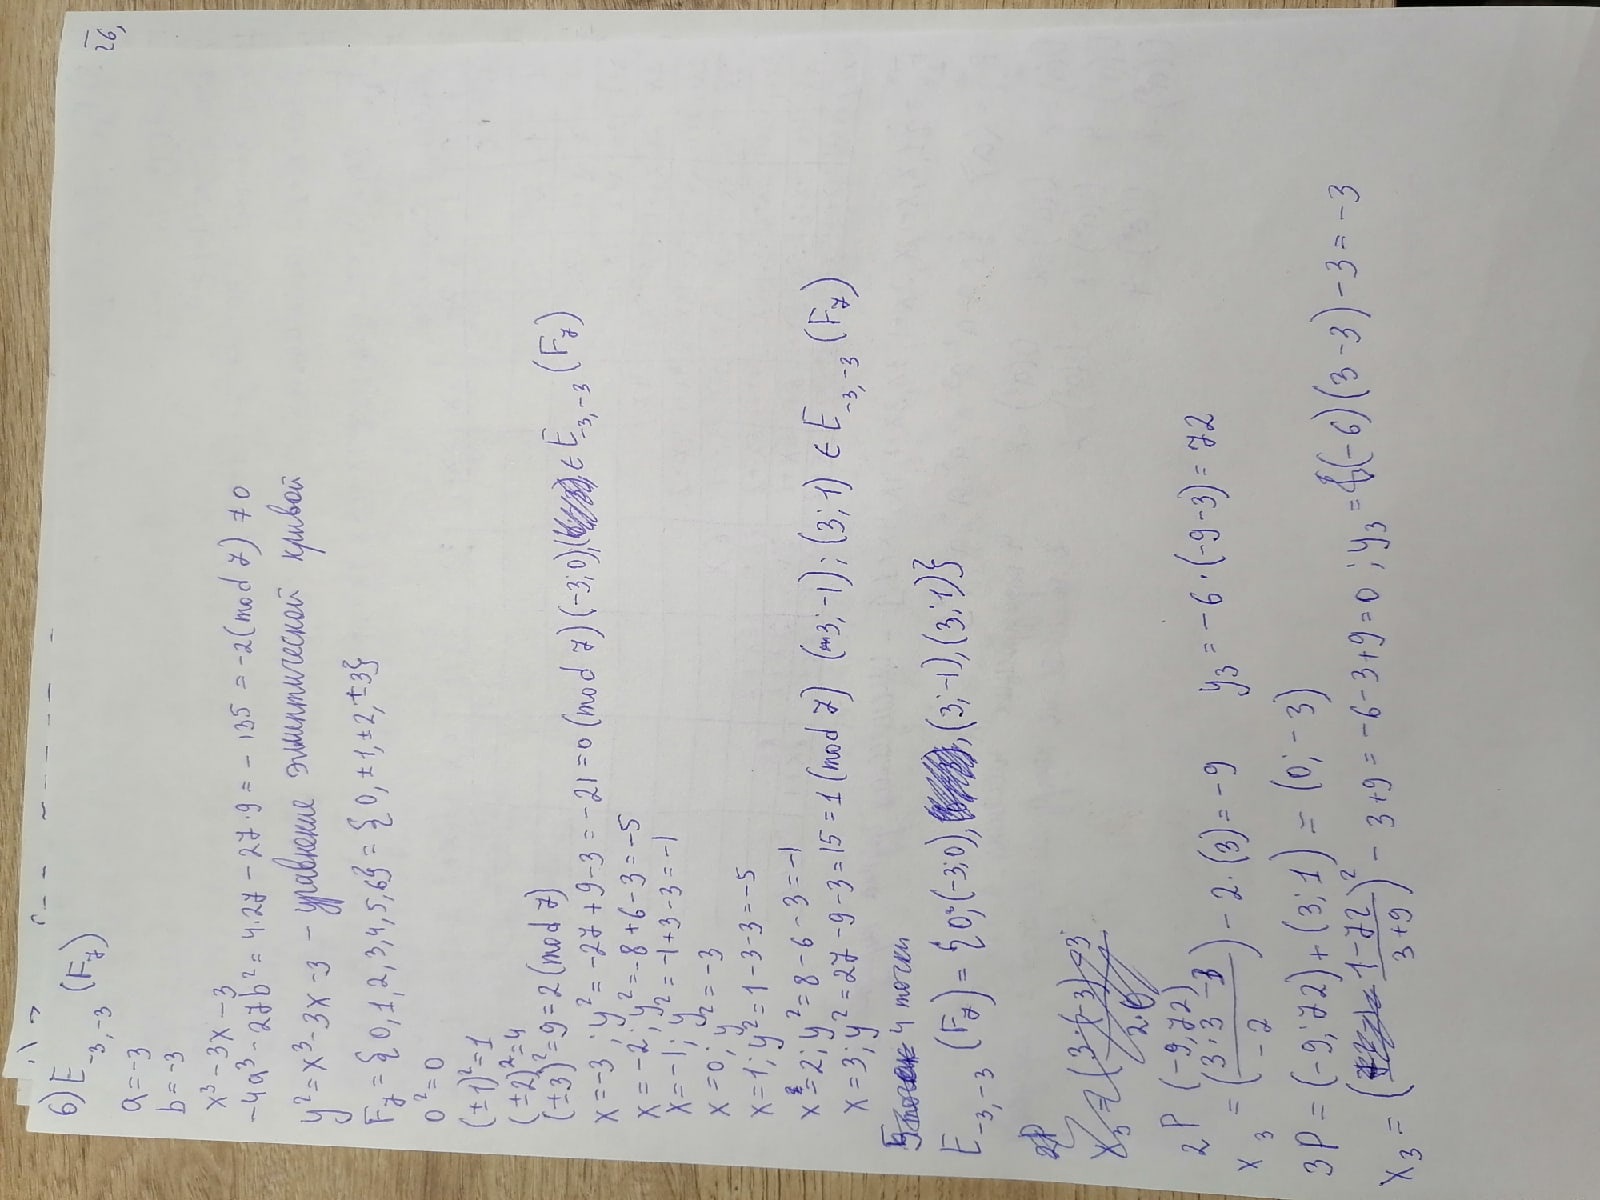 26,
6) E_{-3,-3} (F_7)
a = -3
b = -3
x³ - 3x - 3
-4a³ - 27b² = 4·27 - 27·9 = -135 = -2 (mod 7) ≠ 0
y² = x³ - 3x - 3 - уравнение эллиптической кривой
F_7 = {0, 1, 2, 3, 4, 5, 6} = {0, ±1, ±2, ±3}
0² = 0
(±1)² = 1
(±2)² = 4
(±3)² = 9 = 2 (mod 7)
x = -3; y² = -27 + 9 - 3 = -21 = 0 (mod 7) (-3; 0), ∈ E_{-3,-3} (F_7)
x = -2; y² = -8 + 6 - 3 = -5
x = -1; y² = -1 + 3 - 3 = -1
x = 0; y² = -3
x = 1; y² = 1 - 3 - 3 = -5
x = 2; y² = 8 - 6 - 3 = -1
x = 3; y² = 27 - 9 - 3 = 15 = 1 (mod 7) (3; -1); (3; 1) ∈ E_{-3,-3} (F_7)
4 точки
E_{-3,-3} (F_7) = {0, (-3; 0), (3; -1), (3; 1)}
2P
x_3 = (3·(-3) - 3 / 2·0
2P (-9, 72)
x_3 = (3·3 - 3 / -2) - 2·(3) = -9 y_3 = -6·(-9 - 3) = 72
3P = (-9; 72) + (3; 1) = (0; -3)
x_3 = (1 - 72 / 3 + 9)² - 3 + 9 = -6 - 3 + 9 = 0; y_3 = (-6)(3 - 3) - 3 = -3